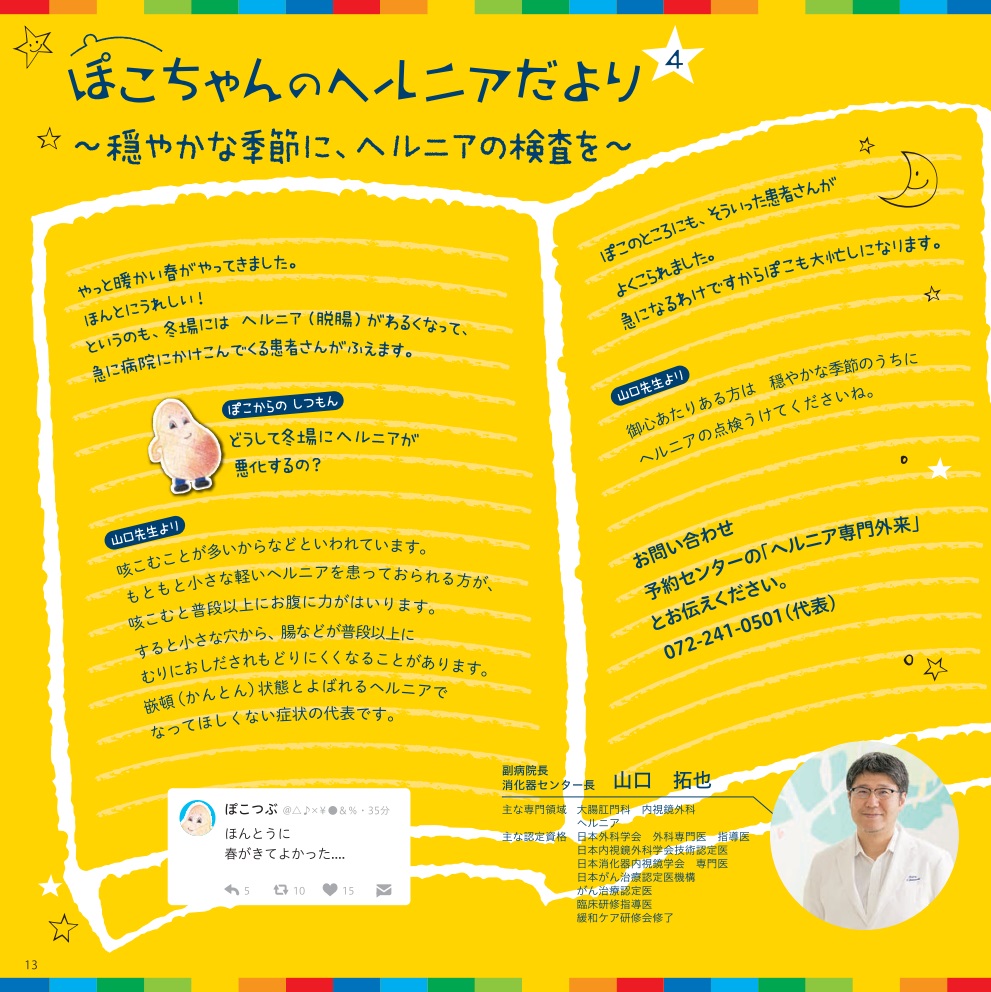 ぽこちゃんのヘルニアだより
4
～穏やかな季節に、ヘルニアの検査を～
やっと暖かい春がやってきました。
ほんとにうれしい！
というのも、冬場には ヘルニア（脱腸）がわるくなって、
急に病院にかけこんでくる患者さんがふえます。
ぽこからの しつもん
どうして冬場にヘルニアが
悪化するの？
山口先生より
咳こむことが多いからなどといわれています。
もともと小さな軽いヘルニアを患っておられる方が、
咳こむと普段以上にお腹に力がはいります。
すると小さな穴から、腸などが普段以上に
むりにおしだされもどりにくくなることがあります。
嵌頓（かんとん）状態とよばれるヘルニアで
なってほしくない症状の代表です。
ぽこのところにも、そういった患者さんが
よくこられました。
急になるわけですからぽこも大忙しになります。
山口先生より
御心あたりある方は 穏やかな季節のうちに
ヘルニアの点検うけてくださいね。
お問い合わせ
予約センターの「ヘルニア専門外来」
とお伝えください。
072-241-0501（代表）
ぽこつぶ @△♪×￥●＆％・35分
ほんとうに
春がきてよかった....
5 10 15
副病院長
消化器センター長 山口 拓也
主な専門領域 大腸肛門科 内視鏡外科
ヘルニア
主な認定資格 日本外科学会 外科専門医 指導医
日本内視鏡外科学会技術認定医
日本消化器内視鏡学会 専門医
日本がん治療認定医機構
がん治療認定医
臨床研修指導医
緩和ケア研修会修了
13